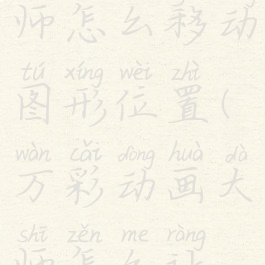 师怎么移动
tú xíng wèi zhì
图形位置(
wàn cǎi dòng huà dà
万彩动画大
shī zěn me ràng
师怎么让